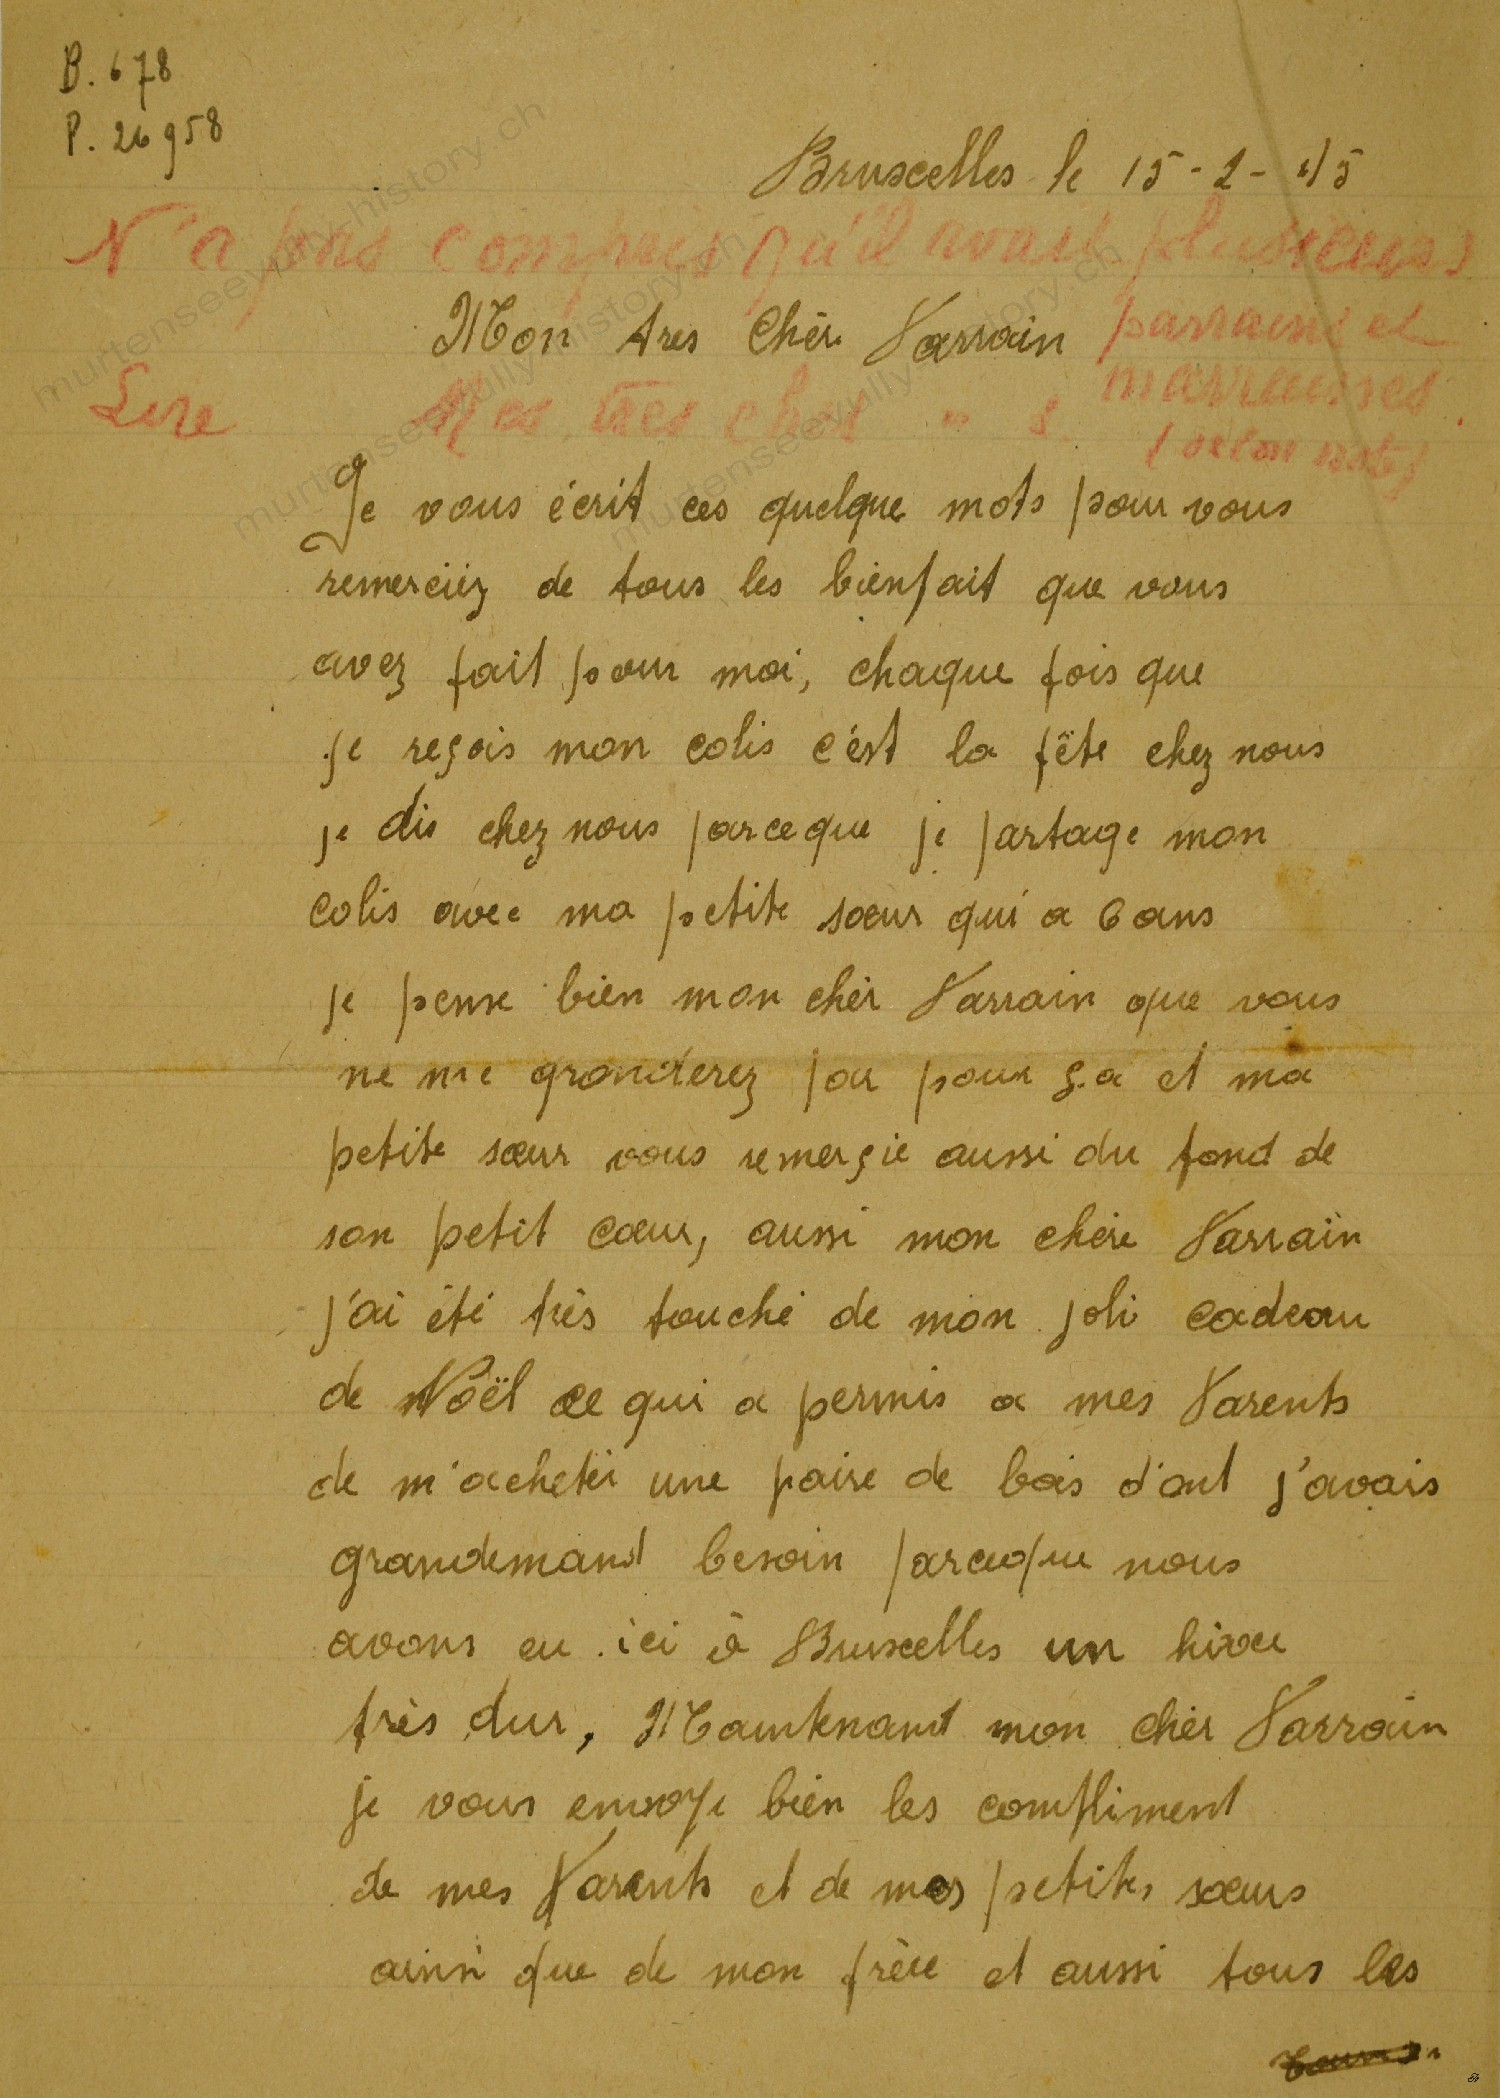 B. 678
P. 26958
Bruxelles le 15-2-45
N'a pas compris qu'il avait plusieurs
Mon tres Chèr Parrain
parrains et
marraines
Lire Mes très chers " s
(selon note)
Je vous écrit ces quelque mots pour vous
remerciéz de tous les bienfait que vous
avez fait pour moi, chaque fois que
je reçois mon colis c'est la fête chez nous
je dis chez nous parceque je partage mon
colis avec ma petite sœur qui a 6 ans
je pense bien mon chèr Parrain que vous
ne me gronderez pas pour ça et ma
petite sœur vous remerçie aussi du fond de
son petit cœur, aussi mon chère Parrain
j'ai été très touché de mon joli cadeau
de Noël ce qui a permis a mes Parents
de m'acheter une paire de bois d'ont j'avais
grandemand besoin parceque nous
avons eu ici à Bruxelles un hiver
très dur, Maintenant mon chèr Parrain
je vous envoye bien les compliment
de mes Parents et de mes petites sœurs
ainsi que de mon frère et aussi tous les
murtenseeyully-history.ch
murtenseeyully-history.ch
murtenseeyullyhistory.ch